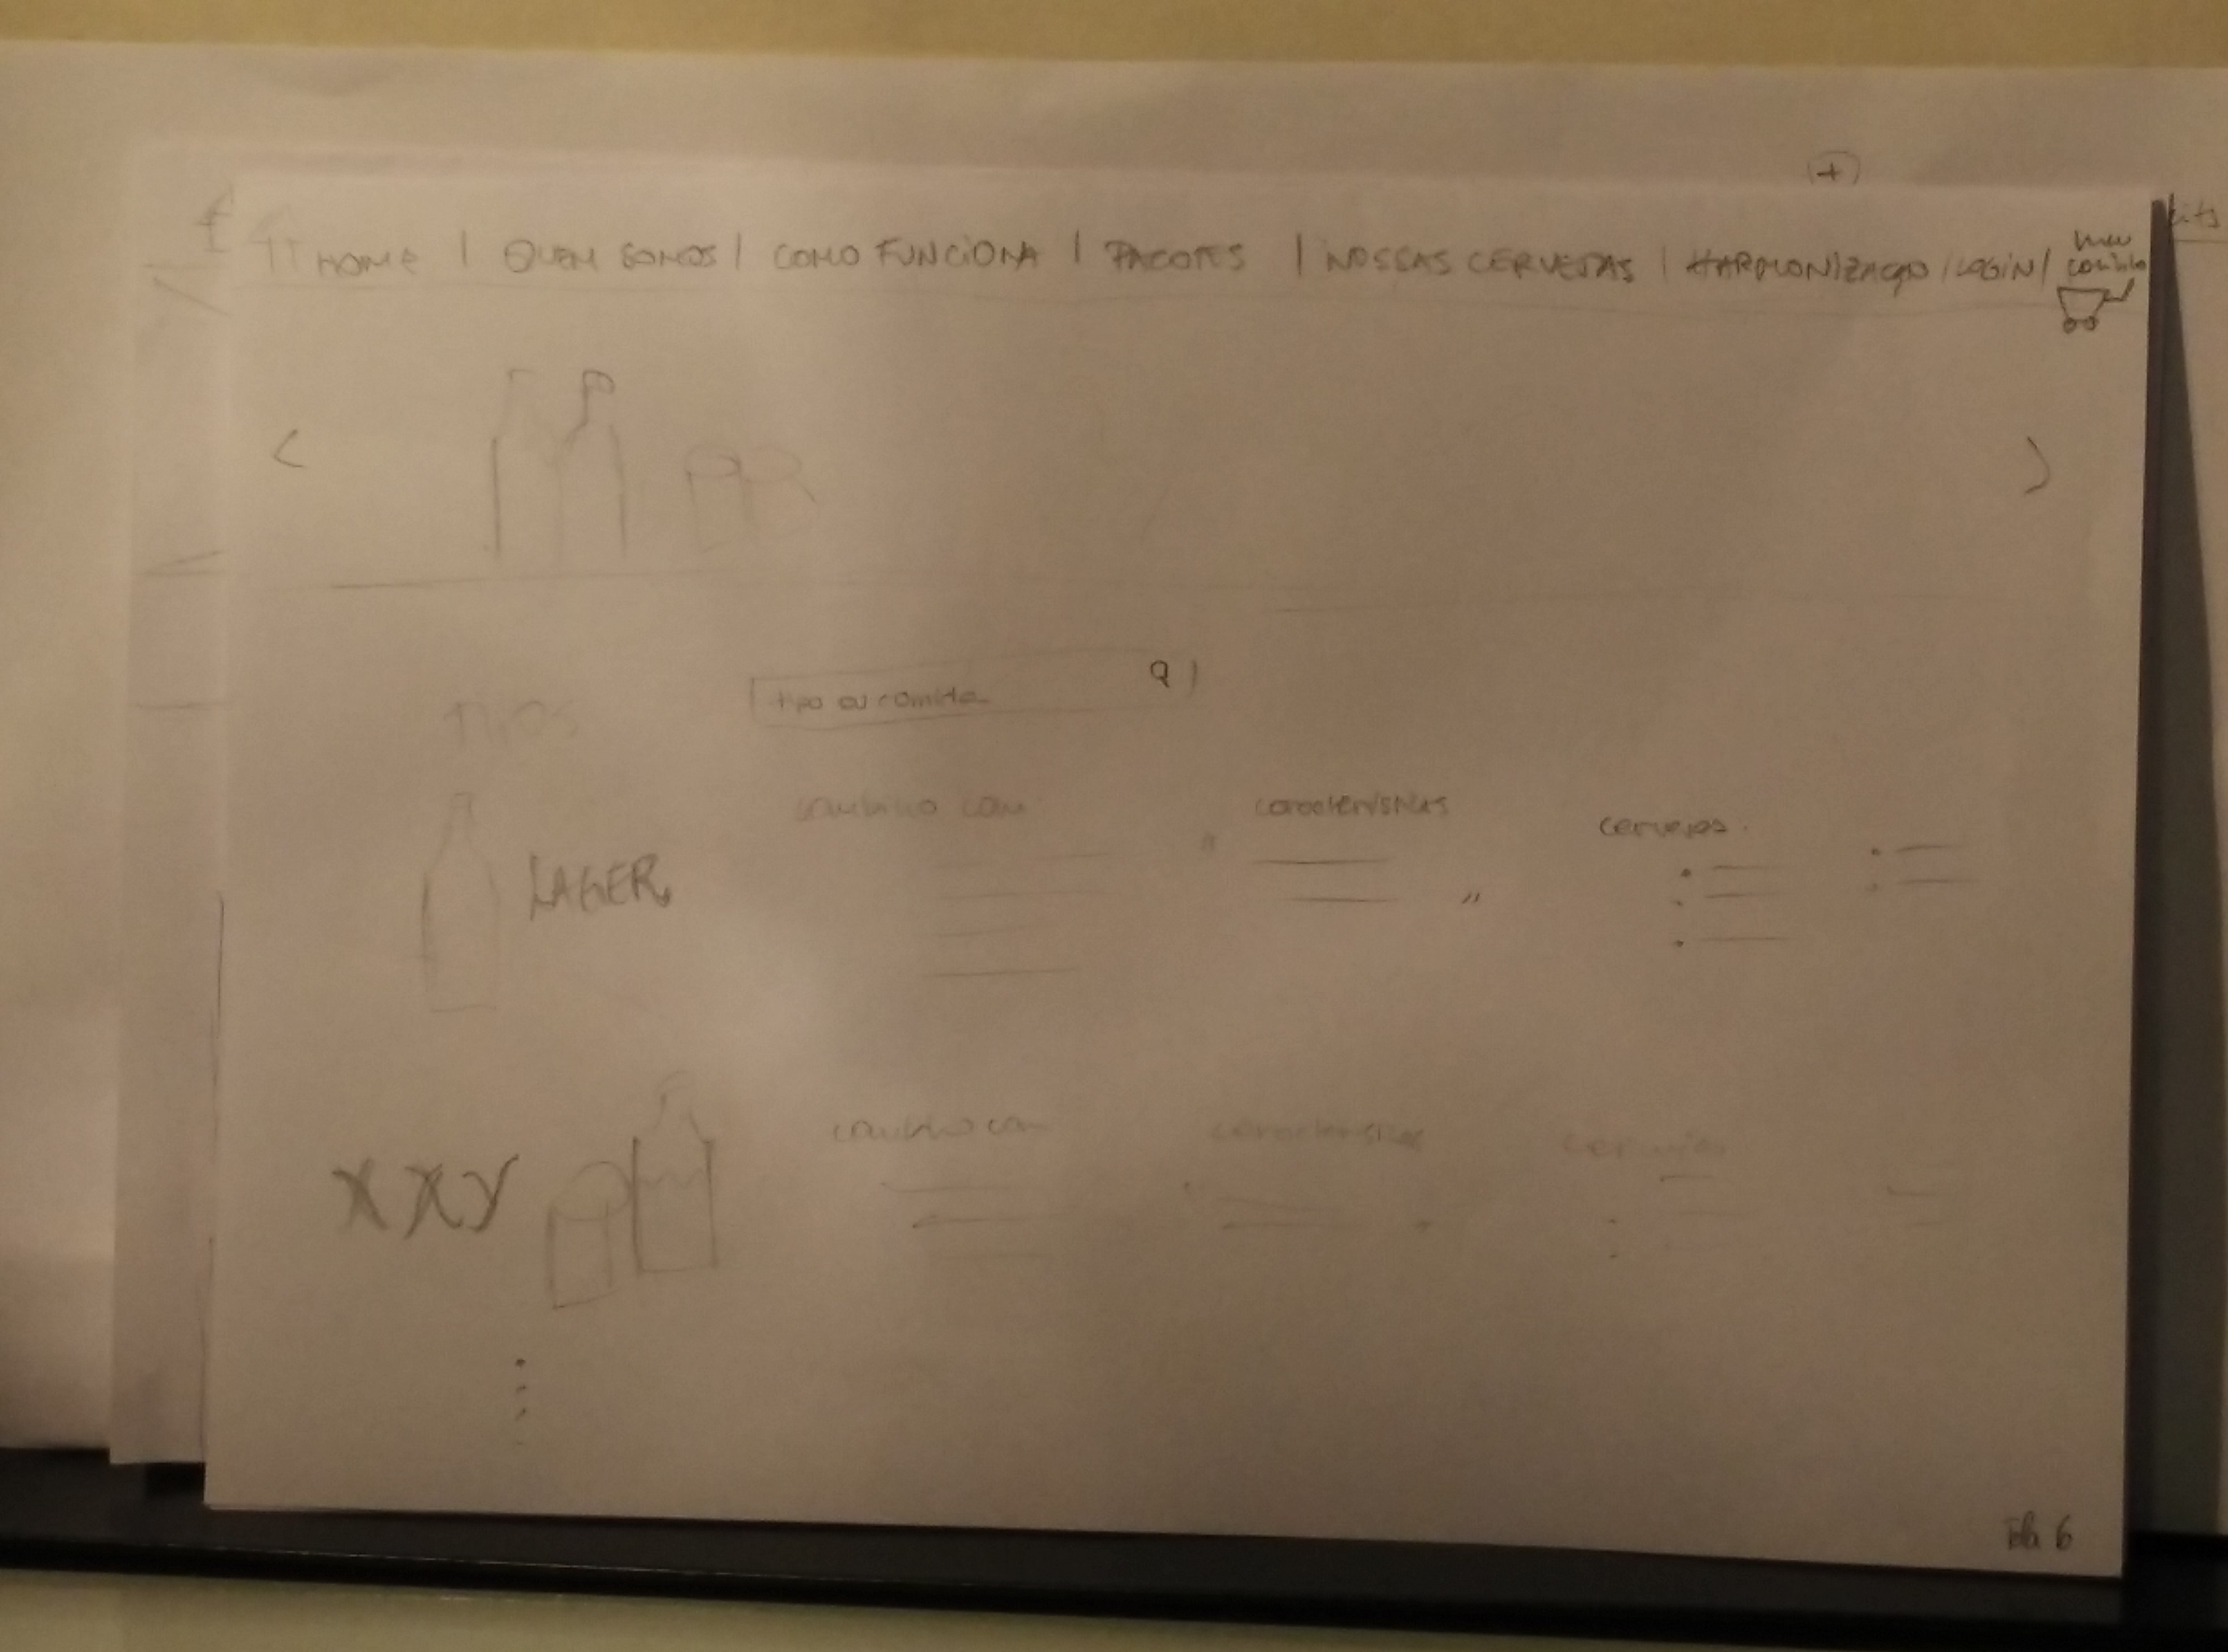 HOME | QUEM SOMOS | COMO FUNCIONA | PACOTES | NOSSAS CERVEJAS | HARMONIZAÇÃO | LOGIN | meu carrinho
tipo ou comida
TIPOS
LAGER
combina com
características
cervejas
XXY
combina com
características
cervejas
Tela 6